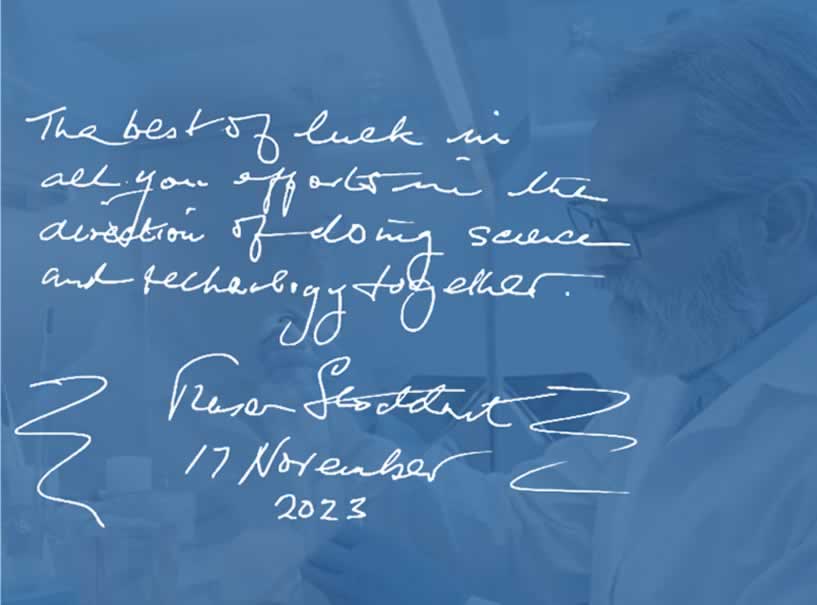 The best of luck in
all you efforts in the
direction of doing science
and technology together.
Fraser Stoddart
17 November
2023